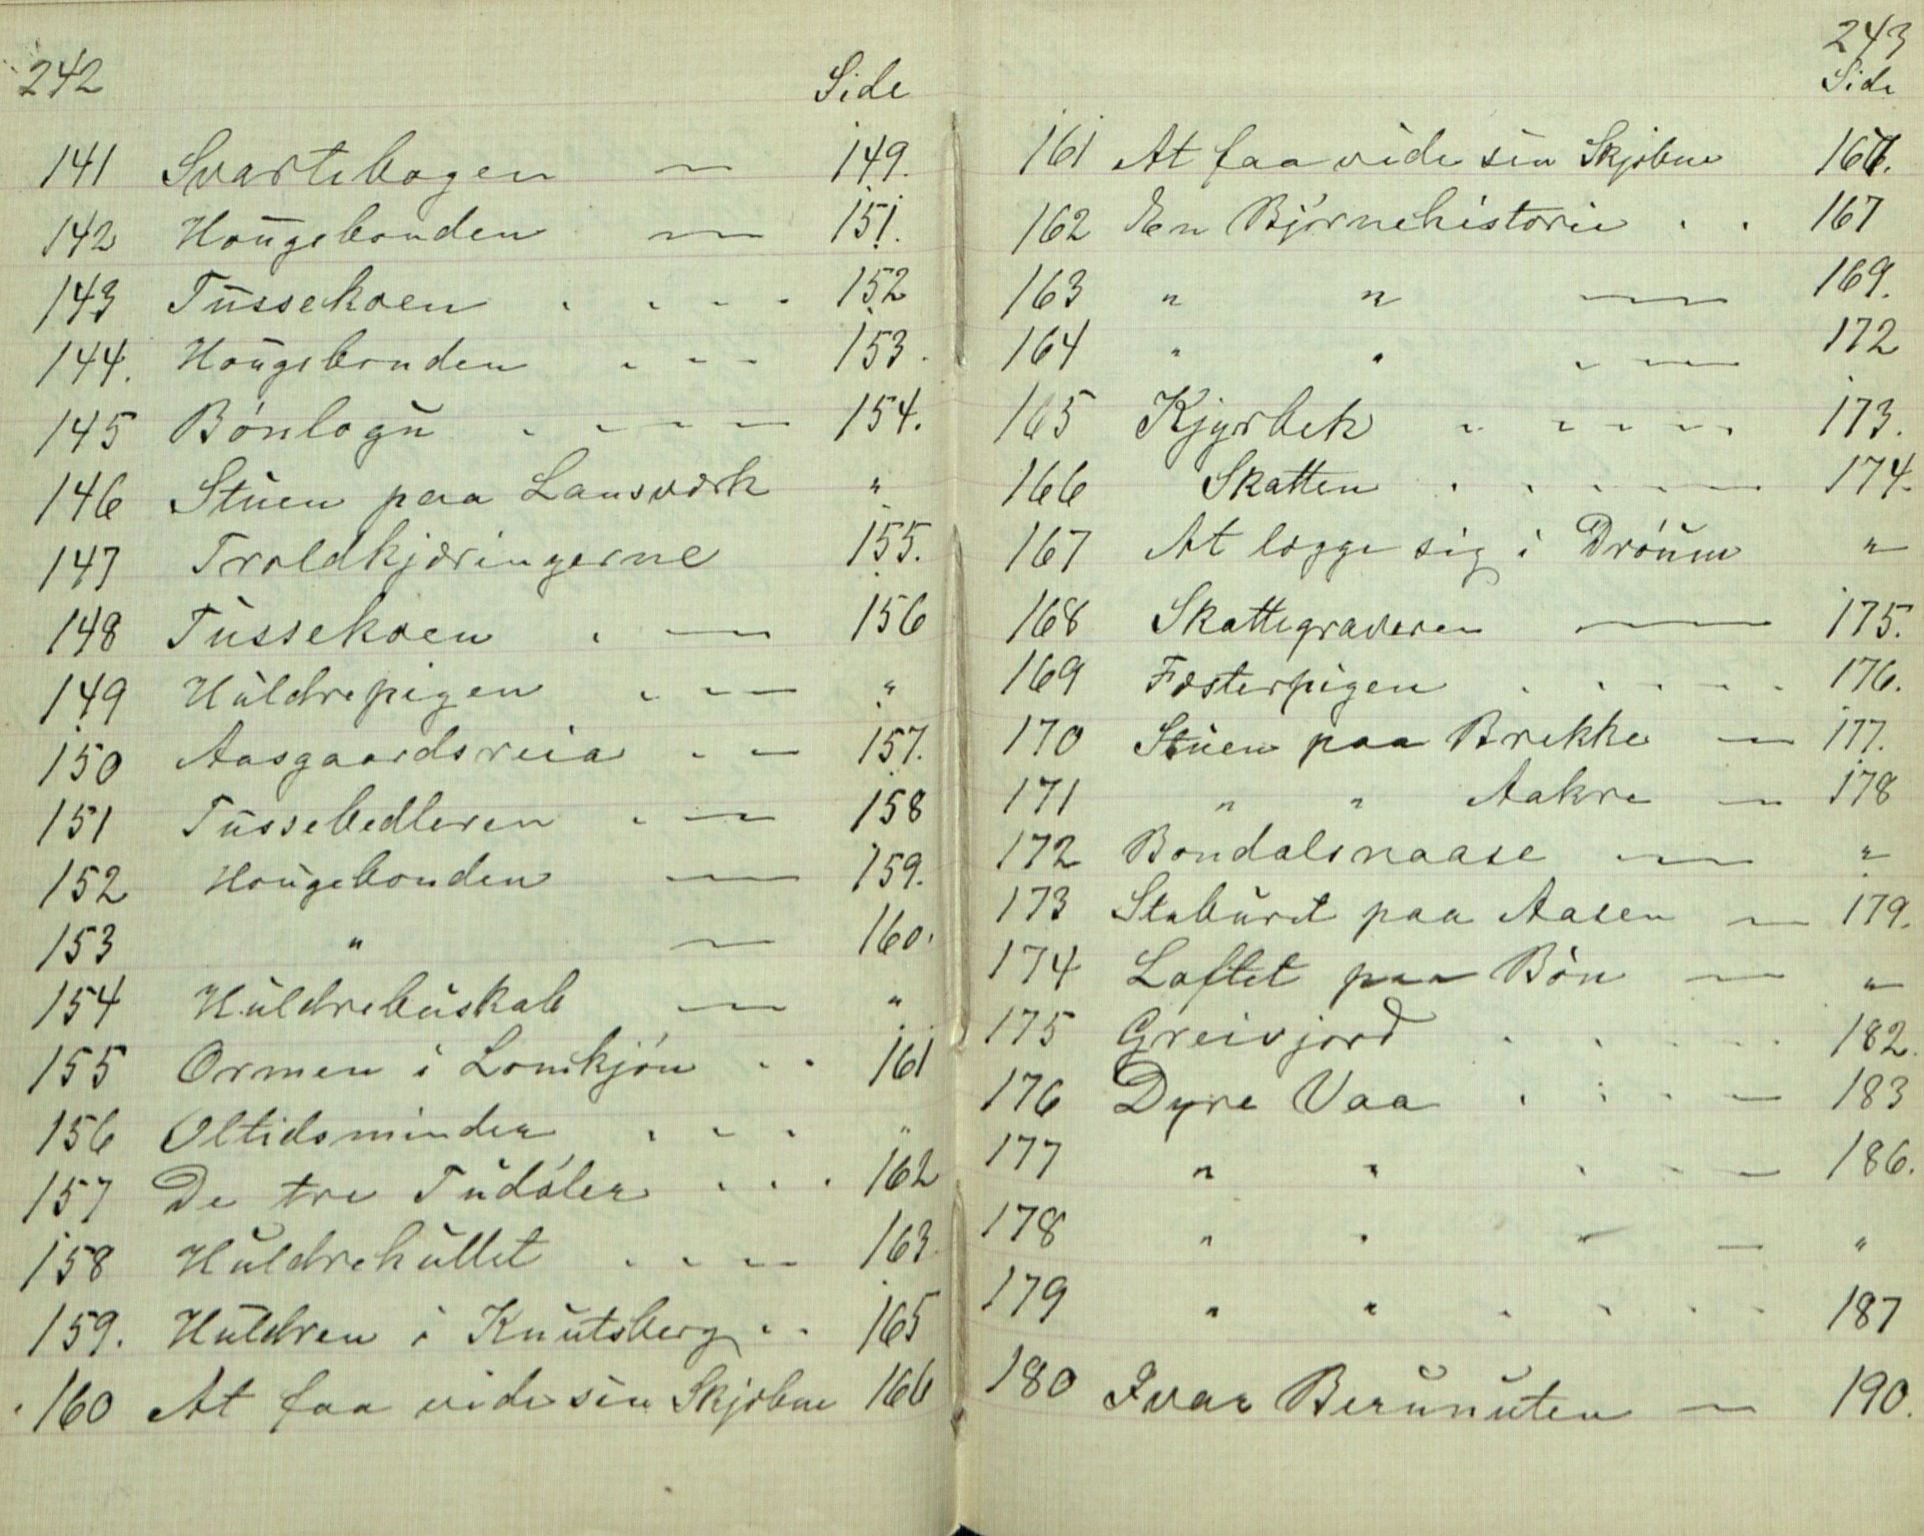 242
Side
141 Svartebogen — 149.
142 Hougebonden — 151.
143 Tussekoen . . . . 152
144. Hougebonden . . . 153.
145 Bónlogu . . . . 154.
146 Stuen paa Lansværk "
147 Troldkjæringerne 155.
148 Tussekoen . — 156
149 Huldrepigen . . — "
150 Aasgaardsreia . . — 157.
151 Tussebedleren . — 158
152 Hougebonden — 159.
153 " — 160.
154 Huldrebuskab — "
155 Ormen i Lomkjón . . 161
156 Oltidsminder . . . "
157 De tre Tudóler . . . 162
158 Huldrehullet . . . 163.
159. Huldren i Knutsberg . . 165
160 At faa vide sin Skjæbne 166
243
Side
161 At faa vide sin Skjæbne 166.
162 En Bjórnehistorie . . 167
163 " " — 169.
164 " " . — 172
165 Kjyrbek . . . . . 173.
166 Skatten . . . . . 174.
167 At lægge sig i Dróum "
168 Skattegraveren — 175.
169 Fæsterpigen . . . . . 176.
170 Stuen paa Brekke — 177.
171 " " Aakre — 178
172 Bondalsnaase — "
173 Staburet paa Aasen — 179.
174 Loftet paa Bón — "
175 Greivjord . . . . . 182.
176 Dyre Vaa . . . — 183
177 " " . . — 186.
178 " " " — "
179 " " . . . . 187
180 Ivar Berununten — 190.